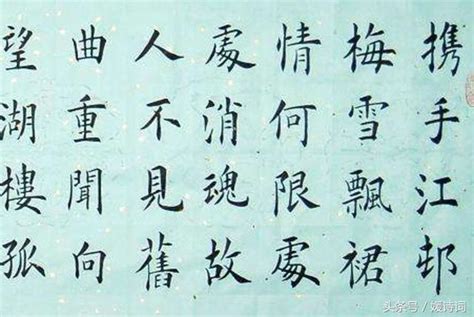 携手江邨
梅雪飄裙
情何限處
處消魂故
人不見舊
曲重聞向
望湖樓孤
头条号/媛诗词